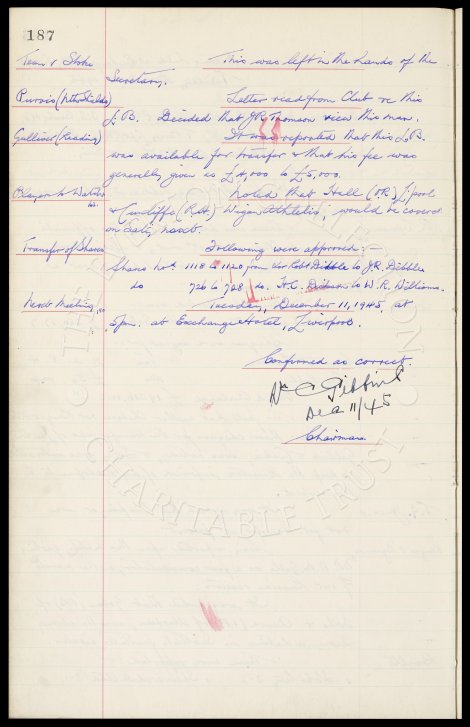 187
Team v Stoke This was left in the hands of the
Secretary.
Purvis (Nth Shields) Letter read from Club re this
L.B. Decided that J.R. Thomson view this man.
Gulliver (Reading) It was reported that this L.B.
was available for transfer & that his fee was
generally given as £4,000 to £5,000.
Players to Watch Noted that Hall (O.R.) L'pool
& Cunliffe (R.H.) Wigan Athletic, would be covered
on Sat. next.
Transfer of Shares Following were approved:-
Shares Nos. 1118 to 1120 from Robt Dibble to J.R. Dibble
do 726 to 728 do. H.C. to W.R. Williams.
Next Meeting Tuesday, December 11, 1945, at
5pm. at Exchange Hotel, Liverpool.
Confirmed as correct.
W C Gibbins
Dec 11/45
Chairman
CHARITABLE TRUST